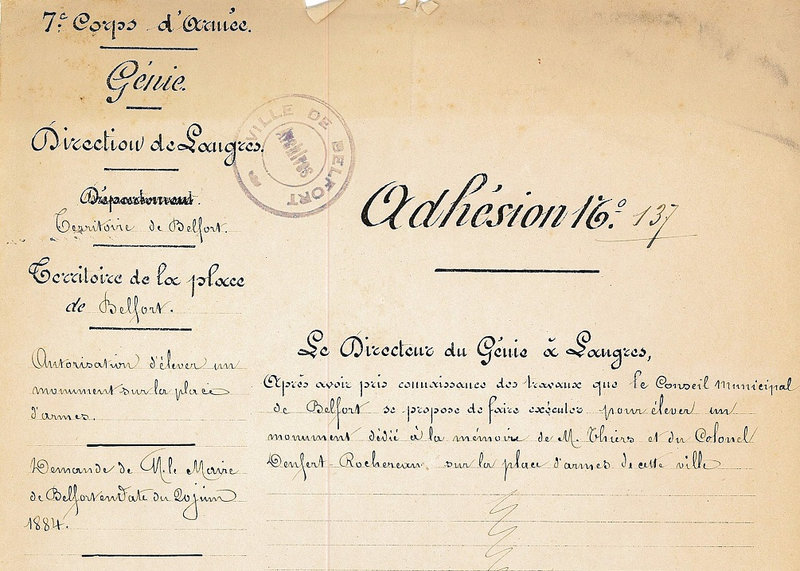 7.e Corps d'Armée.
Génie.
Direction de Langres.
Département.
Territoire de Belfort.
Territoire de la place
de Belfort.
Autorisation d'élever un
monument sur la place
d'armes.
Demande de M. le Maire
de Belfort en date du 20 juin
1884.
VILLE DE BELFORT
Adhésion No. 137
Le Directeur du Génie à Langres,
Après avoir pris connaissance des travaux que le Conseil Municipal
de Belfort se propose de faire exécuter pour élever un
monument dédié à la mémoire de M. Thiers et du Colonel
Denfert-Rochereau, sur la place d'armes de cette ville